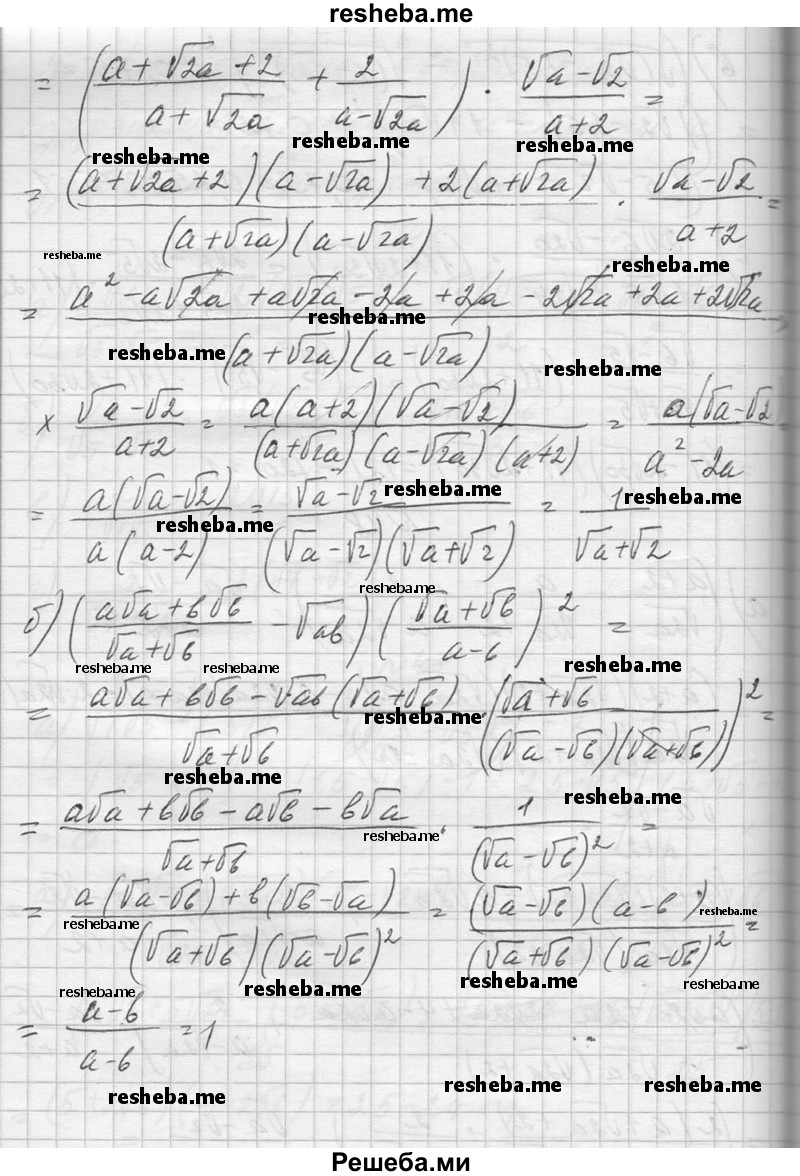 resheba.me
= ( (a + √2a + 2)/(a + √2a) + 2/(a - √2a) ) · (√a - √2)/(a + 2) =
resheba.me resheba.me resheba.me
= ((a + √2a + 2)(a - √2a) + 2(a + √2a))/((a + √2a)(a - √2a)) · (√a - √2)/(a + 2) =
resheba.me resheba.me
= (a² - a√2a + a√2a - 2a + 2a - 2√2a + 2a + 2√2a)/((a + √2a)(a - √2a)) ×
resheba.me resheba.me resheba.me
× (√a - √2)/(a + 2) = (a(a + 2)(√a - √2))/((a + √2a)(a - √2a)(a + 2)) = (a(√a - √2)/(a² - 2a)
resheba.me resheba.me
= (a(√a - √2))/(a(a - 2)) = (√a - √2)/((√a - √2)(√a + √2)) = 1/(√a + √2)
resheba.me resheba.me
б) ( (a√a + b√b)/(√a + √b) - √ab ) ( (√a + √b)/(a - b) )² =
resheba.me resheba.me resheba.me resheba.me
= (a√a + b√b - √ab(√a + √b))/(√a + √b) · ( (√a + √b)/((√a - √b)(√a + √b)) )² =
resheba.me resheba.me
= (a√a + b√b - a√b - b√a)/(√a + √b) · 1/(√a - √b)² =
resheba.me resheba.me
= (a(√a - √b) + b(√b - √a))/((√a + √b)(√a - √b)²) = ((√a - √b)(a - b))/((√a + √b)(√a - √b)²) =
resheba.me resheba.me
resheba.me resheba.me resheba.me resheba.me
= (a - b)/(a - b) = 1
resheba.me resheba.me resheba.me
Решеба.ми